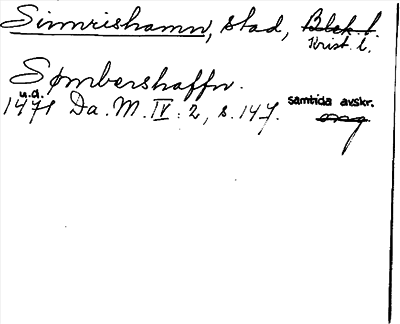 Simrishamn, stad, Blek. l.
Krist. l.
Sømbershaffn.
u.d.
1471 Da. M. IV: 2, s. 147. samtida avskr.
orig